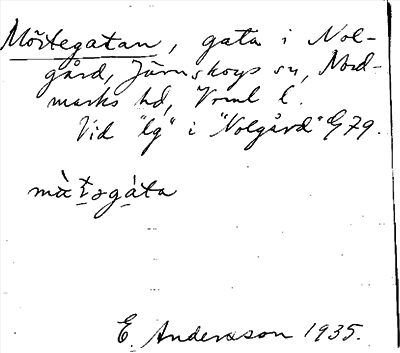 Mörtegatan, gata i Nol-
gård, Järnskogs sn, Nord-
marks hd, Vrml l.
Vid "lg" i "Nolgård" G79.
mà̀t̠əgáta
E. Andersson 1935.